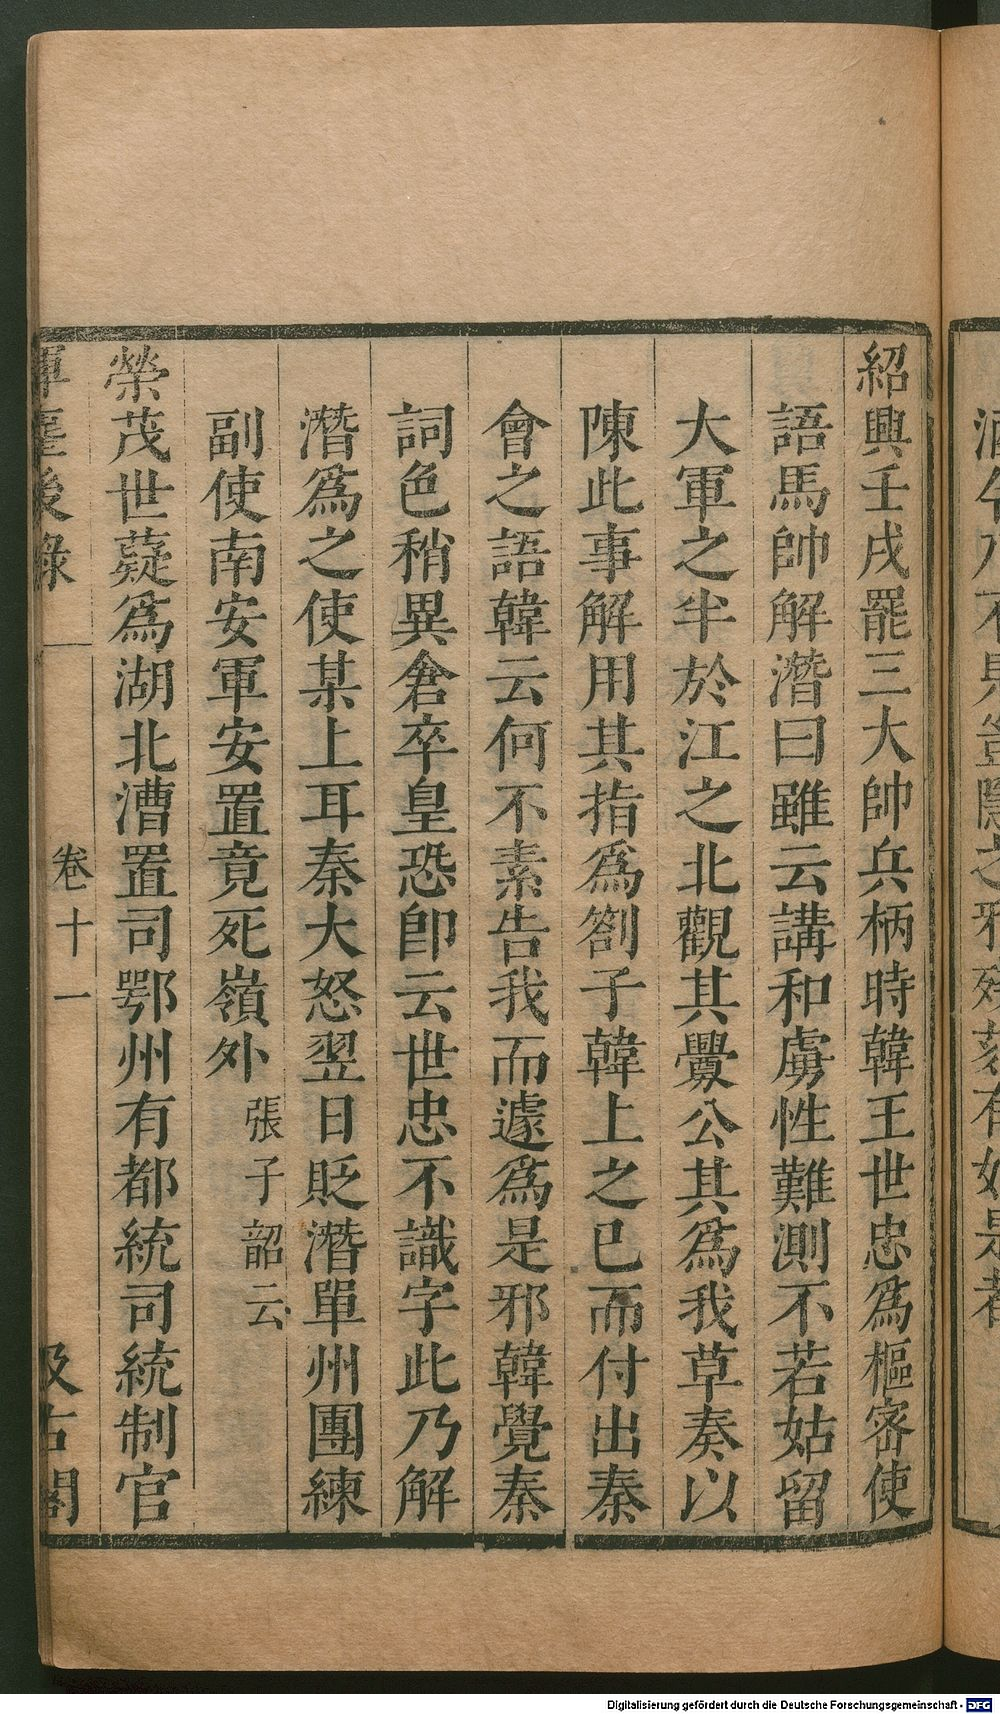 紹興壬戌罷三大帥兵柄時韓王世忠爲樞密使
語馬帥解潛曰雖云講和虜性難測不若姑留
大軍之半於江之北觀其釁公其爲我草奏以
陳此事解用其指爲劄子韓上之已而付出秦
會之語韓云何不素告我而遽爲是邪韓覺秦
詞色稍異倉卒皇恐卽云世忠不識字此乃解
潛爲之使某上耳秦大怒翌日貶潛單州團練
副使南安軍安置竟死嶺外張子韶云
榮茂世薿爲湖北漕置司鄂州有都統司統制官
揮麈後錄
卷十一
汲古閣
Digitalisierung gefördert durch die Deutsche Forschungsgemeinschaft - DFG